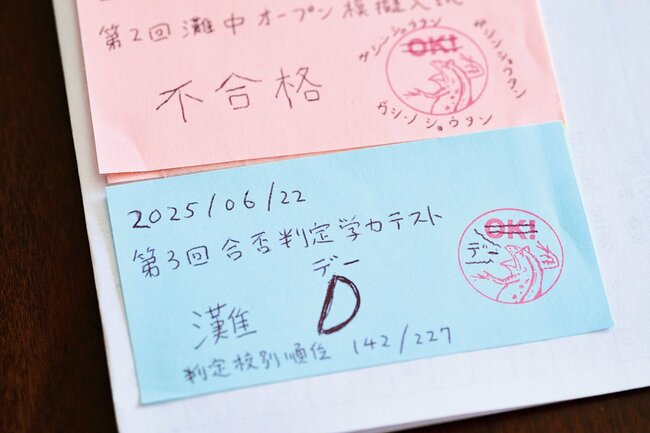 第2回 灘中オープン模擬入試
OK!
ガシンショウタン
ガシンショウタン
不合格
ガシンショウタン
2025/06/22
第3回 合否判定学力テスト
OK!
デー
デー
灘 D
判定校別順位 142/227